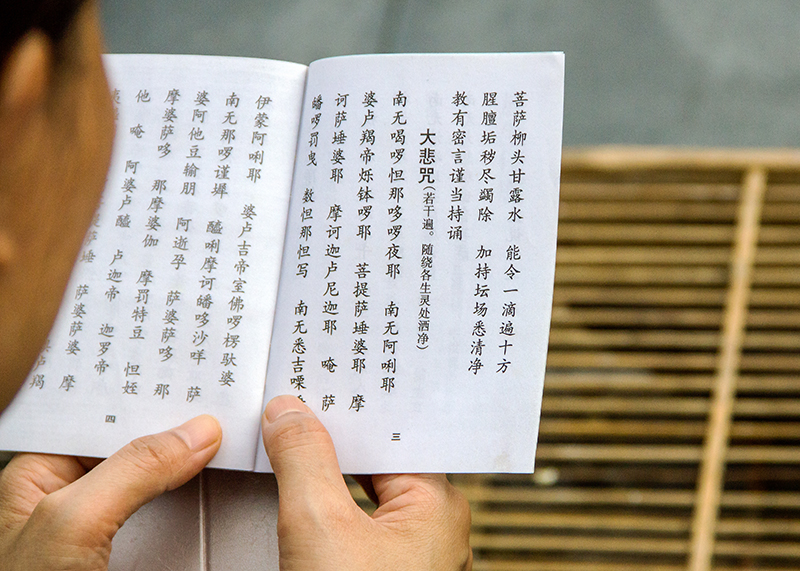 菩萨柳头甘露水 能令一滴遍十方
腥膻垢秽尽蠲除 加持坛场悉清净
教有密言谨当持诵
大悲咒(若干遍。随绕各生灵处洒净)
南无喝啰怛那哆啰夜耶 南无阿唎耶
婆卢羯帝烁钵啰耶 菩提萨埵婆耶 摩
诃萨埵婆耶 摩诃迦卢尼迦耶 唵 萨
皤啰罚曳 数怛那怛写 南无悉吉㗚
三
伊蒙阿唎耶 婆卢吉帝室佛啰楞驮婆
南无那啰谨墀 醯唎摩诃皤哆沙咩 萨
婆阿他豆输朋 阿逝孕 萨婆萨哆 那
摩婆萨哆 那摩婆伽 摩罚特豆 怛姪
他 唵 阿婆卢醯 卢迦帝 迦罗帝
萨埵 萨婆萨婆 摩
四